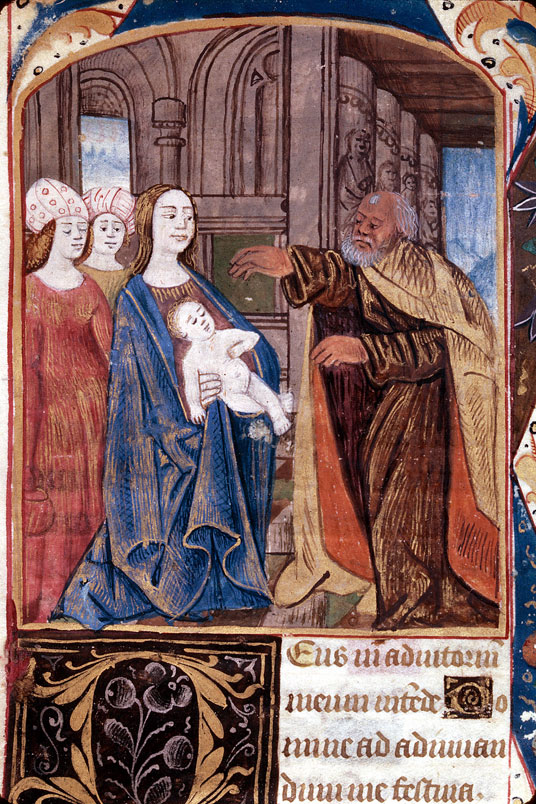 DEus in adiutoriu
meum intēde Do
mine ad adiuuan
dum me festina.